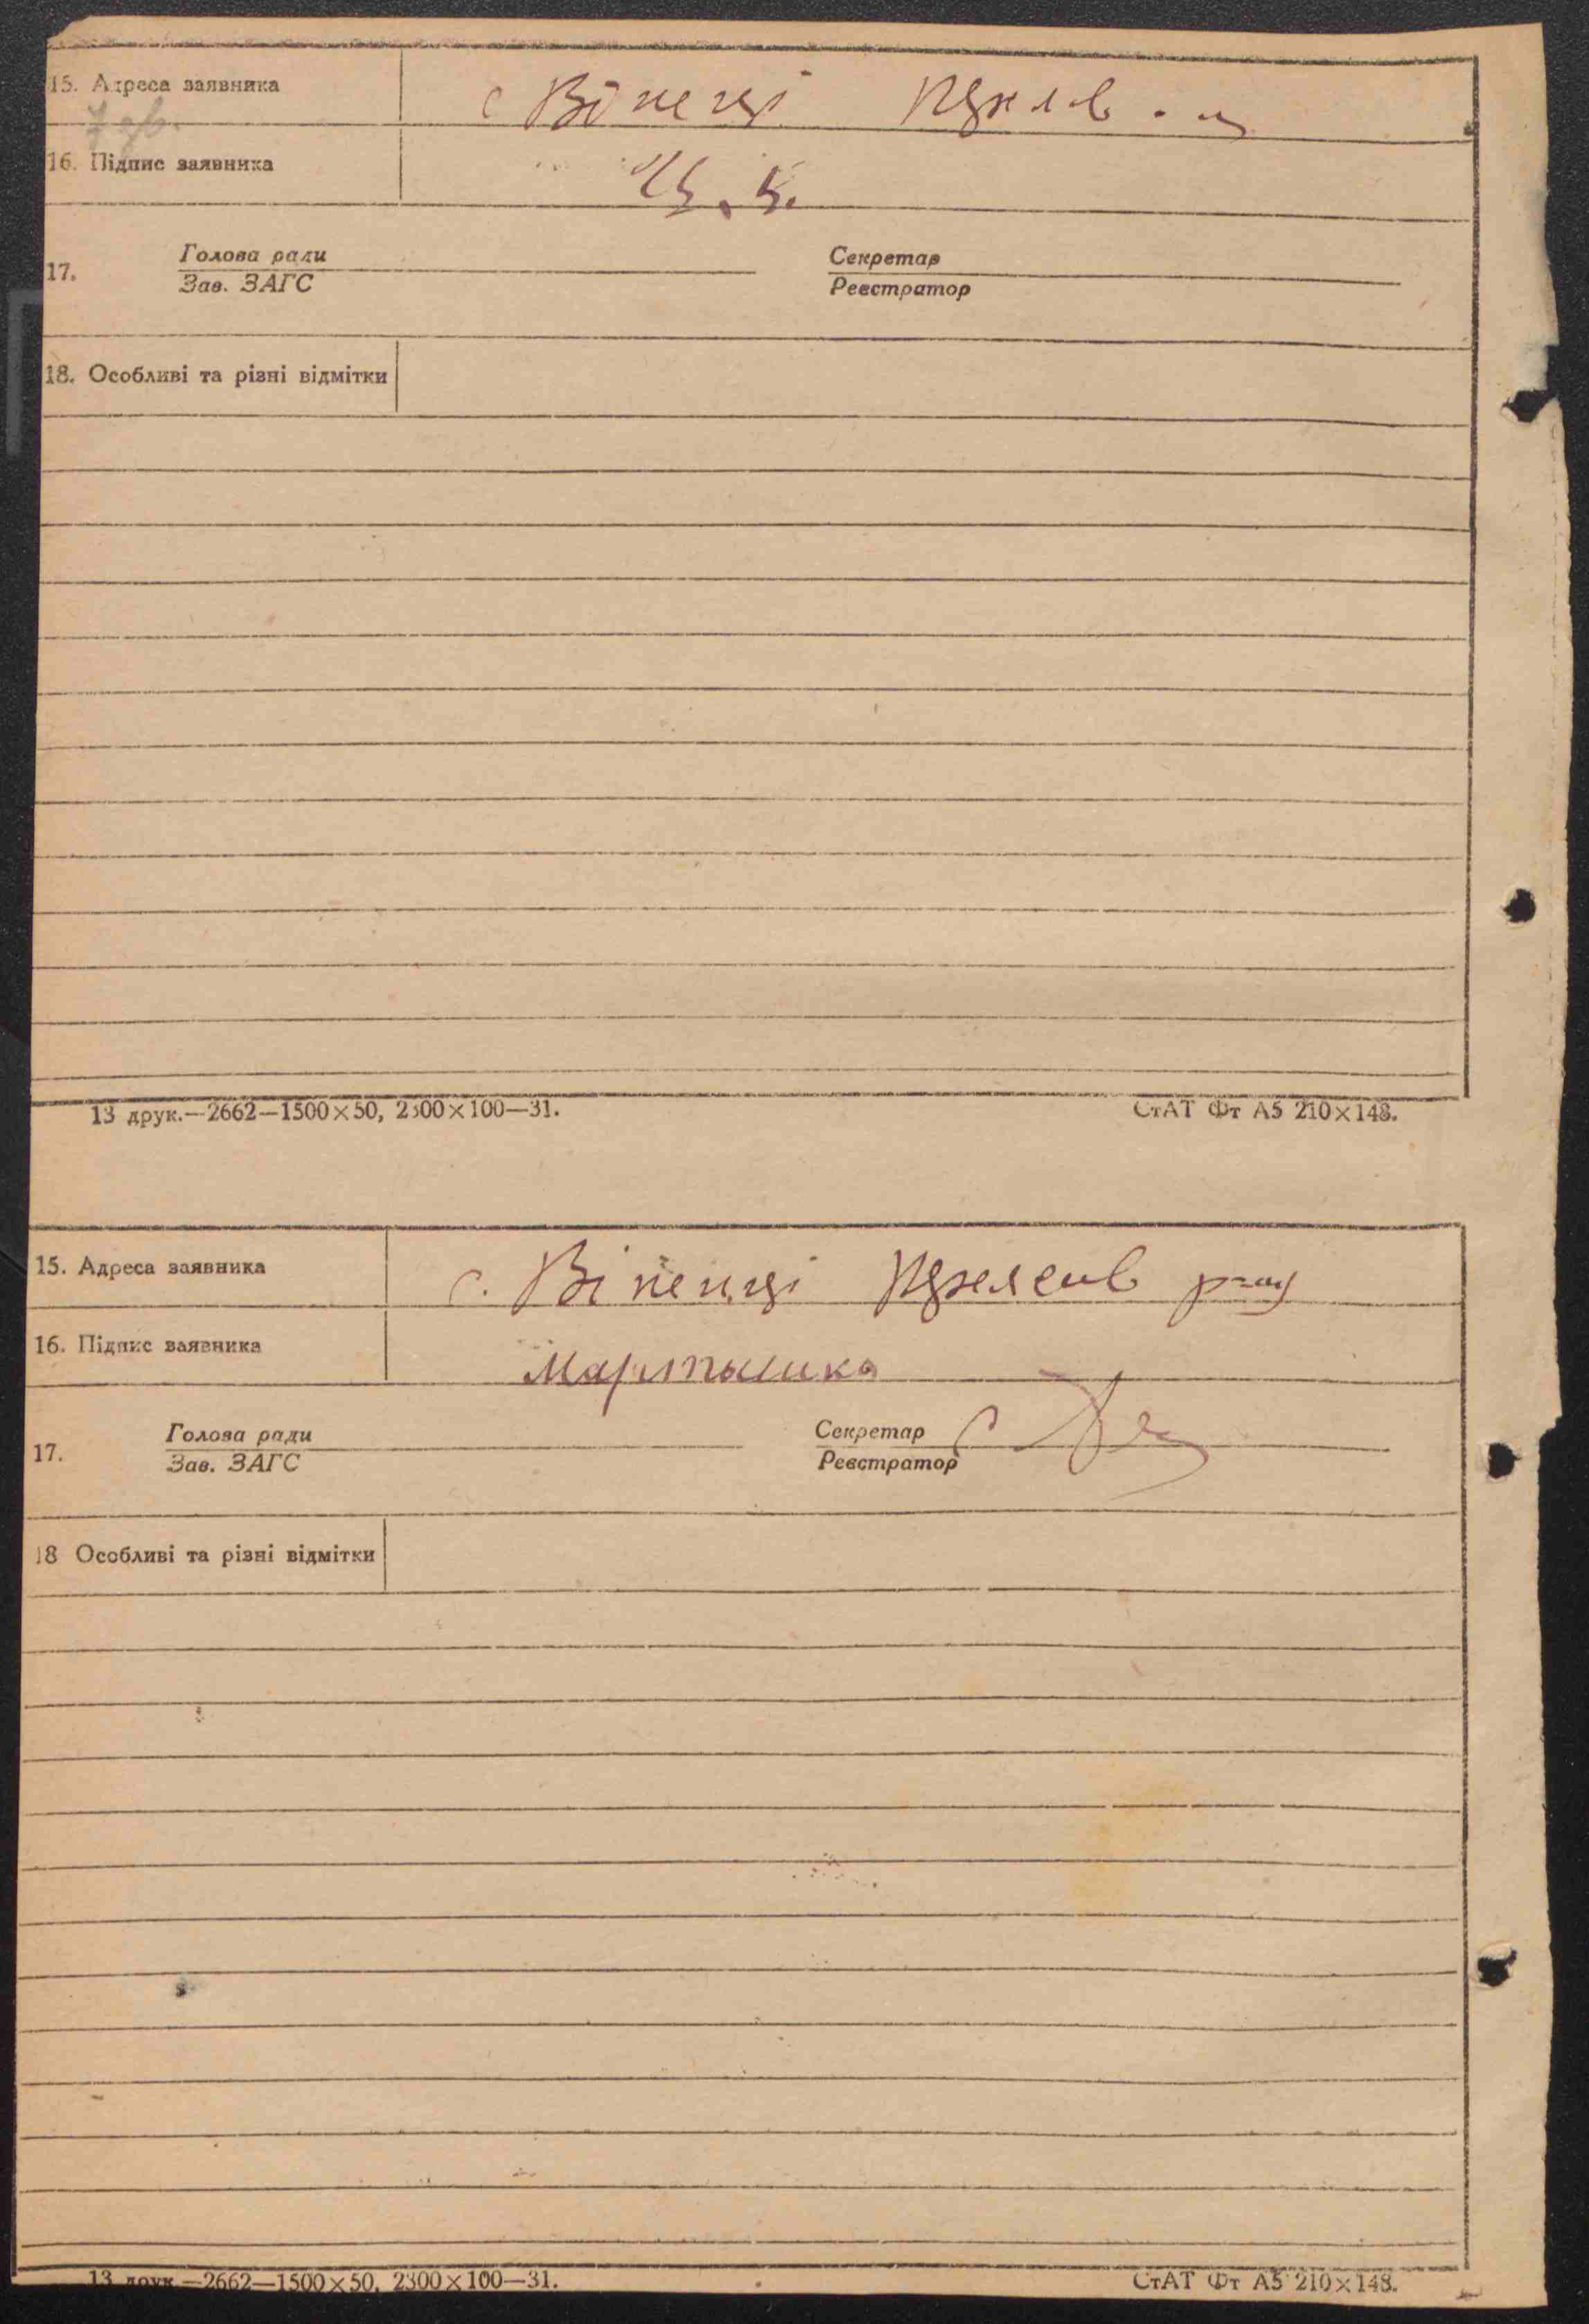 15. Адреса заявника с Віненці
16. Підпис заявника
17. Голова ради Секретар
Зав. ЗАГС Реєстратор
18. Особливі та різні відмітки
13 друк.—2662—1500×50, 2300×100—31. СтАТ Фт А5 210×148.
15. Адреса заявника с. Віненці
16. Підпис заявника Мартышко
17. Голова ради Секретар
Зав. ЗАГС Реєстратор
18 Особливі та різні відмітки
13 друк.—2662—1500×50, 2300×100—31. СтАТ Фт А5 210×148.